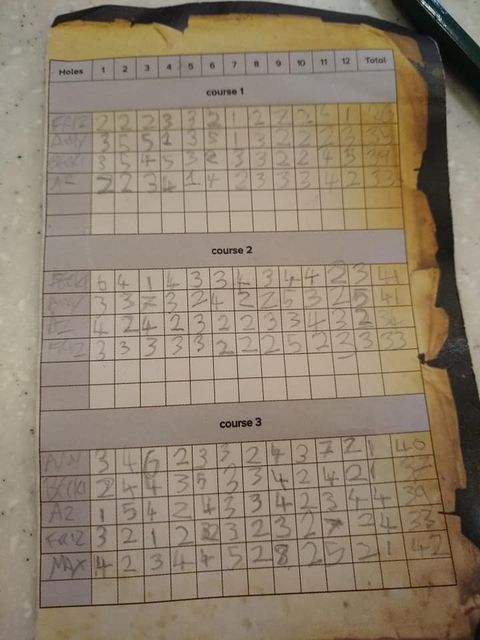 Holes 1 2 3 4 5 6 7 8 9 10 11 12 Total
course 1
2 2 2 3 3 2 1 2 2 2 1
3 5 5 3 5 1 3 2 2 2 3
3 5 4 5 3 3 3 2 2 4 3
2 2 3 4 1 4 2 3 3 3 4 2 33
course 2
6 4 1 4 3 3 4 3 4 4 2 3 41
3 3 7 3 2 4 2 2 5 3 2 5 41
AZ 4 2 4 2 3 2 2 3 3 4 3 2 34
3 3 3 3 3 2 2 2 5 2 3 3 33
course 3
3 4 6 2 3 3 2 4 3 7 2 1 40
2 4 4 3 5 3 3 4 2 4 2 1
AZ 1 5 4 2 4 3 3 4 2 3 4 4 39
3 2 1 2 2 3 2 3 2 7 2 4 33
MAX 4 2 3 4 4 5 2 8 2 5 2 1 42